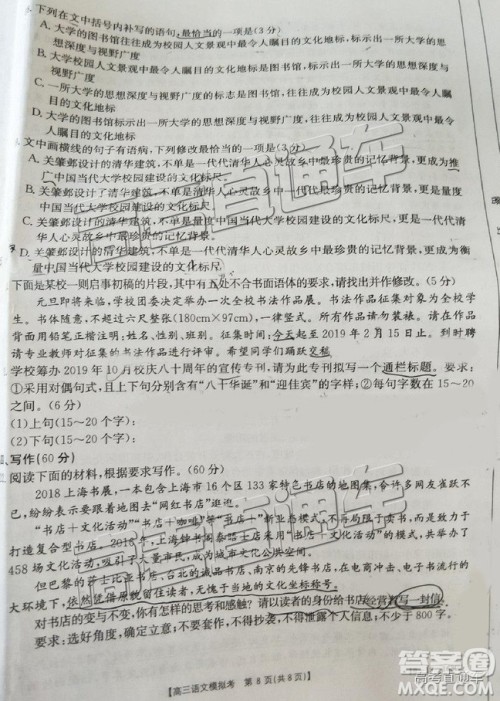 下列在文中括号内补写的语句,最恰当的一项是(3分)
A. 大学的图书馆往往成为校园人文景观中最令人瞩目的文化地标,标示出一所大学的思
想深度与视野广度
B. 大学的图书馆往往成为校园人文景观中最令人瞩目的文化地标,标示一所大学思想深度
与视野广度
C. 一所大学的思想深度与视野广度的标志是图书馆,往往成为校园人文景观中最令人
瞩目的文化地标
D. 一所大学思想深度与视野广度的标志是图书馆,往往成为校园人文景观中最令人
瞩目的文化地标
文中画横线的句子有语病,下列修改最恰当的一项是(3分)
A. 关肇邺设计的清华建筑,不单是一代代清华人心灵故乡中最珍贵的记忆背景,更是推
广中国当代大学校园建设的文化标尺。
B. 关肇邺设计了清华建筑,不单是一代代清华人心灵故乡中最珍贵的记忆背景,更成为
中国当代大学校园建设的文化标尺。
C. 关肇邺设计的清华建筑,不单是度量中国当代大学校园建设的文化标尺,更是一代代清
华人心灵故乡中最珍贵的记忆背景。
D. 关肇邺设计的清华建筑,不单是一代代清华人心灵故乡中最珍贵的记忆背景,更成为衡
量中国当代大学校园建设的文化标尺
下面是某校一则启事初稿的片段,其中有五处不合书面语体的要求,请找出并作修改。(5分)
元旦即将来临,学校团委决定举办一次校园书法作品展。书法作品征集对象为全校学
生。书体随意,不超过六尺整张(180cm×97cm),一律竖式。所有作品请勿装裱。作品背面右
下角要用铅笔正楷注明:姓名、性别、班别。征集时间:今天起到2019年2月15日止,到时聘
请专业教师对征集的书法作品进行评选。希望同学们踊跃交稿
学校筹办2019年10月校庆八十周年的宣传专刊,请为此专刊拟写一个通栏标题。要
求:①采用对偶句式,且上下句分别含有“八十华诞”和“迎佳宾”的字样;②每句字数在15~20
之间。(6分)
(1)上句(15~20个字):
(2)下句(15~20个字):
、写作(60分)
阅读下面的材料,根据要求写作。(60分)
2018上海书展,一本包含上海市16个区133家特色书店的地图手册,令许多网友爱不释手
已,纷纷表示要跟着地图去“网红书店”逛逛。
“书店+文化活动”“书店+咖啡”等“书店+”新业态模式,不再只卖书,
打造复合型书店。
458场文化活动,吸引了大量市民,成为城市文化公共空间。
但巴黎的莎士比亚书店、台北的诚品书店、南京的先锋书店,
大环境下,依然凭借原貌留住读者,无愧于当地的文化坐标称号。
对书店的变与不变,你有怎样的思考和感触?请以读者的身份给书店经营者写一封信。
要求:选好角度,确定立意,不要套作,不得抄袭,不得泄露个人信息;不少于800字。
【高三语文模拟考 第8页(共8页)】
直通车
高考直通车
答案圈
MXQE.COM